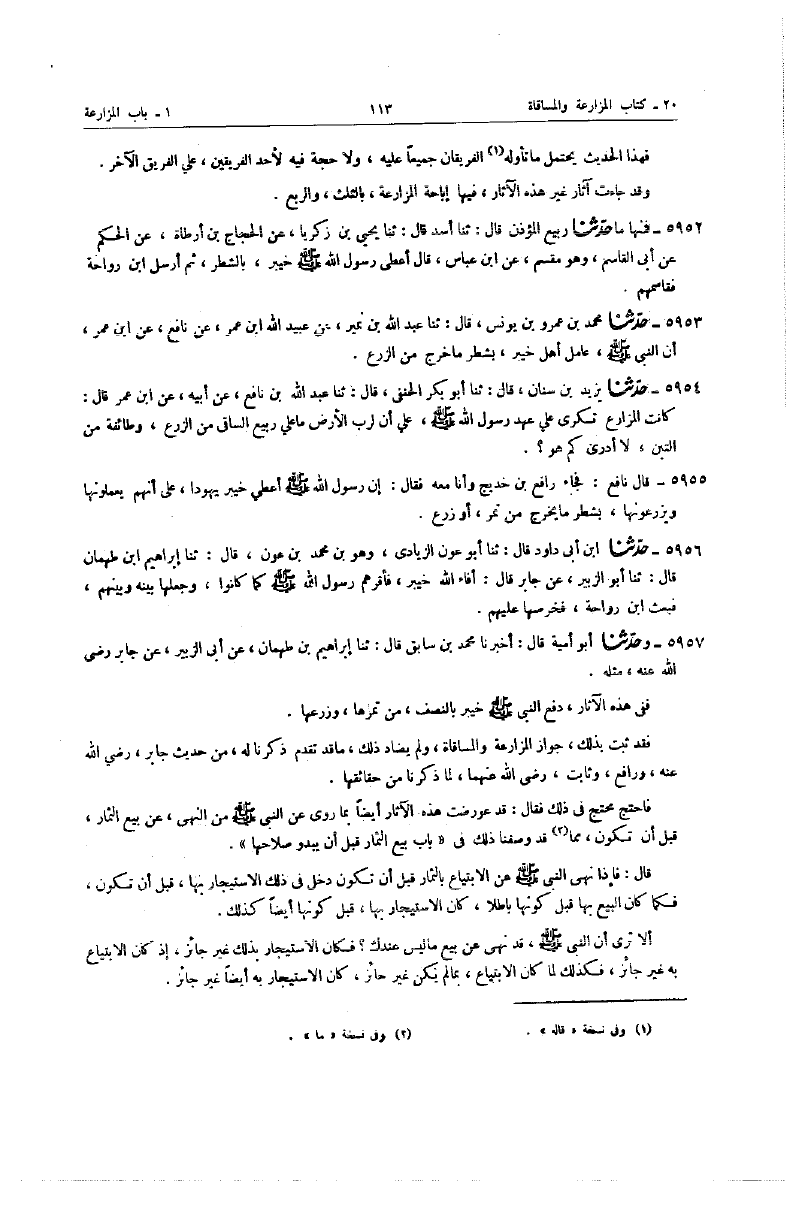 ٢٠ ـ كتاب المزارعة والمساقاة ١١٣ ١ ـ باب المزارعة
فهذا الحديث يحتمل ما تأوله(١) الفريقان جميعاً عليه ، ولا حجة فيه لأحد الفريقين ، علي الفريق الآخر .
وقد جاءت آثار غير هذه الآثار ، فيها إباحة المزارعة ، بالثلث ، والربع .
٥٩٥٢ ـ فمنها ما حدثنا ربيع المؤذن قال : ثنا أسد قال : ثنا يحيى بن زكريا ، عن الحجاج بن أرطاة ، عن الحكم
عن أبى القاسم ، وهو مقسم ، عن ابن عباس ، قال أعطى رسول الله ﷺ خيبر ، بالشطر ، ثم أرسل ابن رواحة
فقاسمهم .
٥٩٥٣ ـ حدثنا محمد بن عمرو بن يونس ، قال : ثنا عبد الله بن نمير ، عن عبيد الله ابن عمر ، عن نافع ، عن ابن عمر ،
أن النبي ﷺ ، عامل أهل خيبر ، بشطر ماخرج من الزرع .
٥٩٥٤ ـ حدثنا يزيد بن سنان ، قال : ثنا أبو بكر الحنفى ، قال : ثنا عبد الله بن نافع ، عن أبيه ، عن ابن عمر قال :
كانت المزارع تكرى علي عهد رسول الله ﷺ ، علي أن لرب الأرض ماعلي ربيع الساقى من الزرع ، وطائفة من
التبن ، لا أدرى كم هو ؟ .
٥٩٥٥ ـ قال نافع : فجاء رافع بن خديج وأنا معه فقال : إن رسول الله ﷺ أعطي خيبر يهودا ، على أنهم يعملونها
ويزرعونها ، بشطر مايخرج من تمر ، أو زرع .
٥٩٥٦ ـ حدثنا ابن أبى داود قال : ثنا أبو عون الزيادى ، وهو بن محمد بن عون ، قال : ثنا إبراهيم ابن طهمان
قال : ثنا أبو الزبير ، عن جابر قال : أفاء الله خيبر ، فأقرهم رسول الله ﷺ كما كانوا ، وجعلها بينه وبينهم ،
فبعث ابن رواحة ، فخرصها عليهم .
٥٩٥٧ ـ وحدثنا أبو أمية قال : أخبرنا محمد بن سابق قال : ثنا إبراهيم بن طهمان ، عن أبى الزبير ، عن جابر رضى
الله عنه ، مثله .
ففى هذه الآثار ، دفع النبي ﷺ خيبر بالنصف ، من تمرها ، وزرعها .
فقد ثبت بذلك ، جواز المزارعة والمساقاة ، ولم يضاد ذلك ، ماقد تقدم ذكرنا له ، من حديث جابر ، رضي الله
عنه ، ورافع ، وثابت ، رضي الله عنهما ، لما ذكرنا من حقائقها .
فاحتج محتج فى ذلك فقال : قد عورضت هذه الآثار أيضاً بما روى عن النبي ﷺ من النهى ، عن بيع الثمار ،
قبل أن تكون ، مما(٢) قد وصفنا ذلك فى « باب بيع الثمار قبل أن يبدو صلاحها » .
قال : فإذا نهى النبي ﷺ عن الابتياع بالثمار قبل أن تكون دخل فى ذلك الاستيجار بها ، قبل أن تكون ،
فكما كان البيع بها قبل كونها باطلا ، كان الاستيجار بها ، قبل كونها أيضاً كذلك .
ألا ترى أن النبى ﷺ ، قد نهى عن بيع ماليس عندك ؟ فكان الاستيجار بذلك غير جائز ، إذ كان الابتياع
به غير جائز ، فكذلك لما كان الابتياع ، بمالم يكن غير جائز ، كان الاستيجار به أيضاً غير جائز .
(١) وفى نسخة « قاله » . (٢) وفى نسخة « ما » .